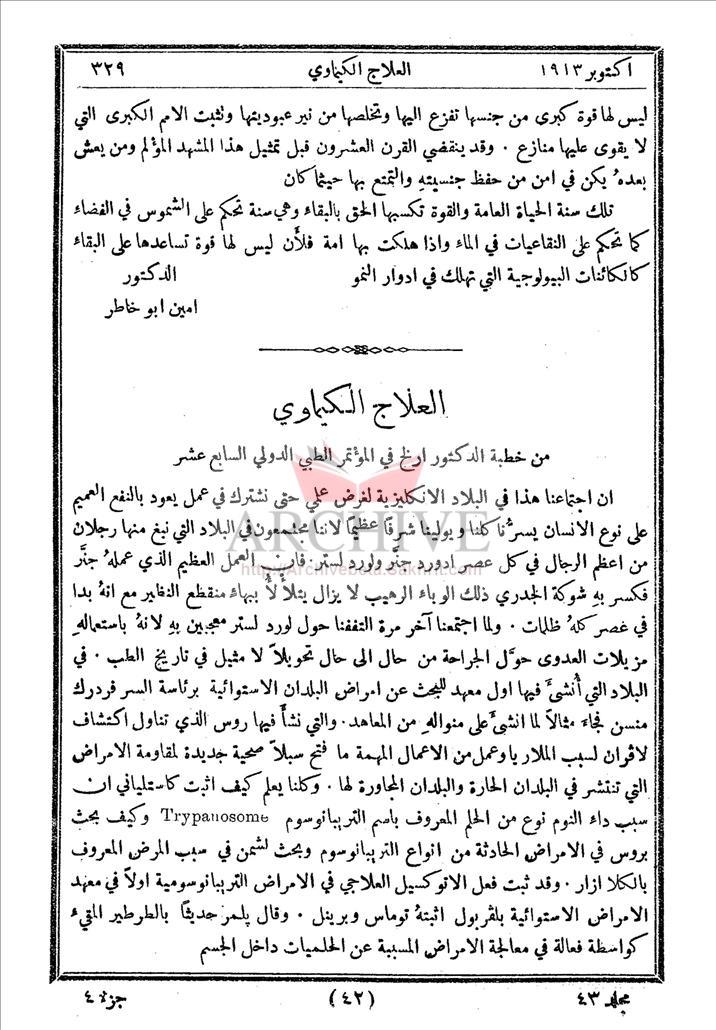 اكتوبر ١٩١٣ العلاج الكيماوي ٣٢٩
ليس لها قوة كبرى من جنسها تفزع اليها وتخلصها من نير عبوديتها وثبتت الامم الكبرى التي
لا يقوى عليها منازع . وقد ينقضي القرن العشرون قبل تمثيل هذا المشهد المؤلم ومن يعش
بعده يكن في امن من حفظ جنسيته والتمتع بها حيثما كان
تلك سنة الحياة العامة والقوة تكسبها الحق بالبقاء وهي سنة تحكم على الشموس في الفضاء
كما تحكم على النقاعيات في الماء واذا هلكت بها امة فلأن ليس لها قوة تساعدها على البقاء
كالكائنات البيولوجية التي تهلك في ادوار النمو الدكتور
امين ابو خاطر
العلاج الكيماوي
من خطبة الدكتور ارلخ في المؤتمر الطبي الدولي السابع عشر
ان اجتماعنا هذا في البلاد الانكليزية لغرض علمي حتى نشترك في عمل يعود بالنفع العميم
على نوع الانسان يسرُّنا كلنا ويولينا شرفًا عظيمًا لاننا مجتمعون في البلاد التي نبغ منها رجلان
من اعظم الرجال في كل عصر ادورد جنَّر ولورد لستر. فان العمل العظيم الذي عمله جنَّر
فكسر به شوكة الجدري ذلك الوباء الرهيب لا يزال يتلألأُ ببهاء منقطع النظير مع انهُ بدا
في عصر كلهُ ظلمات . ولما اجتمعنا آخر مرة التففنا حول لورد لستر معجبين به لانهُ باستعماله
مزيلات العدوى حوَّل الجراحة من حال الى حال تحويلاً لا مثيل في تاريخ الطب . في
البلاد التي أُنشئَ فيها اول معهد للبحث عن امراض البلدان الاستوائية برئاسة السر فردرك
منسن فجاء مثالاً لما انشئَ على منواله من المعاهد. والتي نشأ فيها روس الذي تناول اكتشاف
لاڤران لسبب الملاريا وعمل من الاعمال المهمة ما فتح سبلاً صحية جديدة لمقاومة الامراض
التي تنتشر في البلدان الحارة والبلدان المجاورة لها . وكلنا يعلم كيف اثبت كاستلياني ان
سبب داء النوم نوع من الحلم المعروف باسم التريبانوسوم Trypanosome وكيف بحث
بروس في الامراض الحادثة من انواع التريبانوسوم وبحث لشمن في سبب المرض المعروف
بالكلا ازار . وقد ثبت فعل الاتوكسيل العلاجي في الامراض التريبانوسومية اولاً في معهد
الامراض الاستوائية بلڤربول اثبتهُ توماس وبرينل . وقال پلمر حديثًا بالطرطير المقيء
كواسطة فعالة في معالجة الامراض المسببة عن الحلميات داخل الجسم
مجلد ٤٣ (٤٢) جزء ٤
ARCHIVE
http://Archivebeta.Sakhrit.com